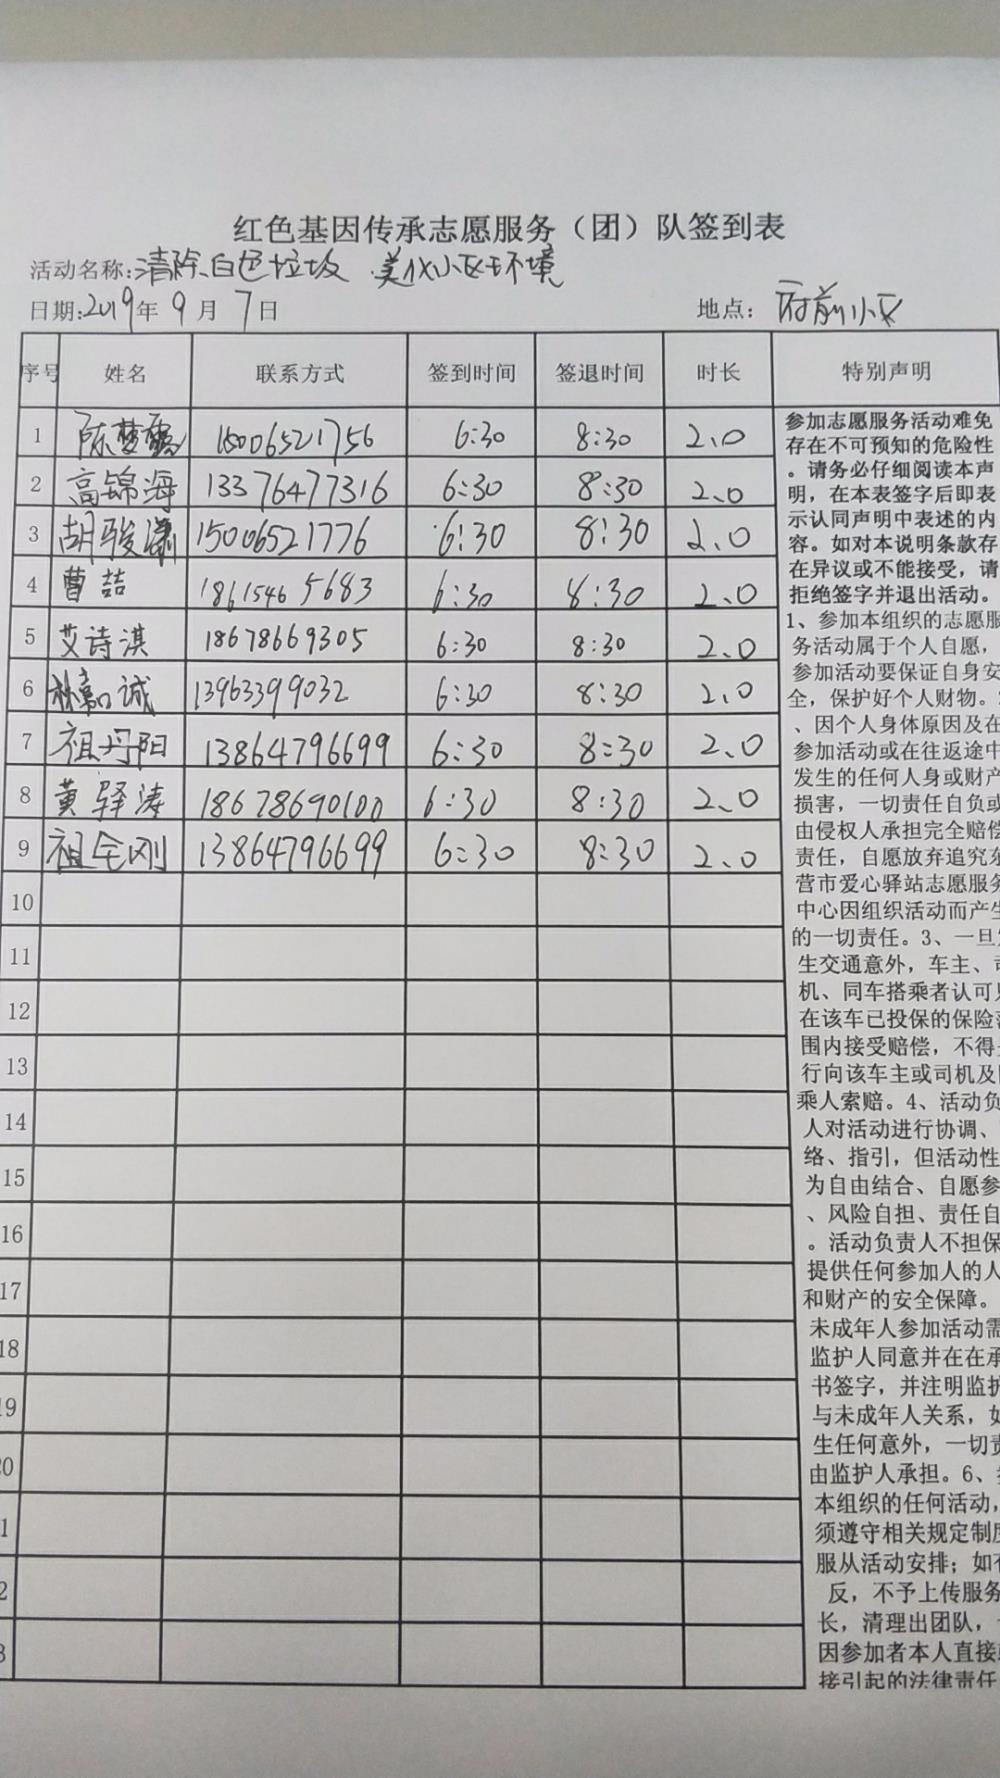 红色基因传承志愿服务（团）队签到表
活动名称:清除白色垃圾 美化小区环境
日期:2019年 9 月 7 日 地点： 府前小区
序号 姓名 联系方式 签到时间 签退时间 时长 特别声明
1 陈梦 15006521756 6:30 8:30 2.0
2 高锦海 13376477316 6:30 8:30 2.0
3 胡骏潇 15006521776 6:30 8:30 2.0
4 曹喆 18615465683 6:30 8:30 2.0
5 艾诗淇 18678669305 6:30 8:30 2.0
6 林嘉诚 13963399032 6:30 8:30 2.0
7 祖丹阳 13864796699 6:30 8:30 2.0
8 黄驿涛 18678690100 6:30 8:30 2.0
9 祖全刚 13864796699 6:30 8:30 2.0
10
11
12
13
14
15
16
17
18
19
20
1
2
3
参加志愿服务活动难免
存在不可预知的危险性
。请务必仔细阅读本声
明，在本表签字后即表
示认同声明中表述的内
容。如对本说明条款存
在异议或不能接受，请
拒绝签字并退出活动。
1、参加本组织的志愿服
务活动属于个人自愿，
参加活动要保证自身安
全，保护好个人财物。
、因个人身体原因及在
参加活动或在往返途中
发生的任何人身或财产
损害，一切责任自负或
由侵权人承担完全赔偿
责任，自愿放弃追究东
营市爱心驿站志愿服务
中心因组织活动而产生
的一切责任。3、一旦发
生交通意外，车主、司
机、同车搭乘者认可只
在该车已投保的保险范
围内接受赔偿，不得另
行向该车主或司机及同
乘人索赔。4、活动负
人对活动进行协调、
络、指引，但活动性
为自由结合、自愿参
、风险自担、责任自
。活动负责人不担保
提供任何参加人的人
和财产的安全保障。
未成年人参加活动需
监护人同意并在在承
书签字，并注明监护
与未成年人关系，如
生任何意外，一切责
由监护人承担。6、
本组织的任何活动，
须遵守相关规定制度
服从活动安排；如有
反，不予上传服务
长，清理出团队，
因参加者本人直接
接引起的法律责任